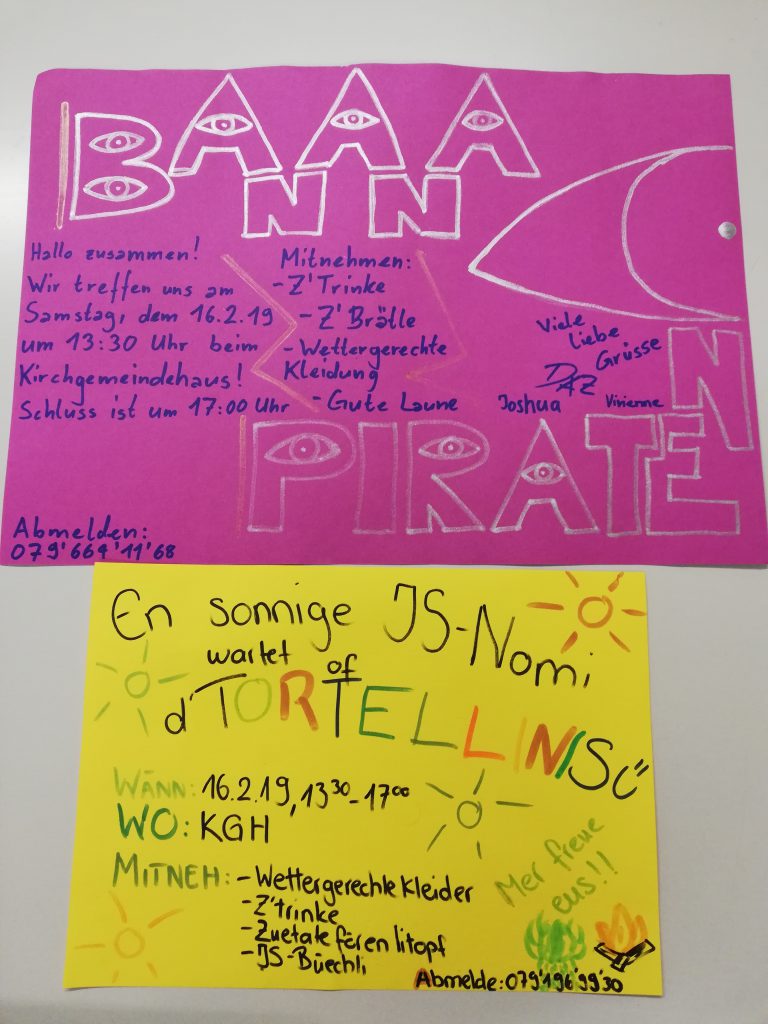 BANANANA
Hallo zusammen!
Wir treffen uns am
Samstag, dem 16.2.19
um 13:30 Uhr beim
Kirchgemeindehaus!
Schluss ist um 17:00 Uhr
Mitnehmen:
- Z'Trinke
- Z'Brätle
- Wettergerechte
Kleidung
- Gute Laune
Viele
liebe
Grüsse
Joshua
Vivienne
PIRATEN
Abmelden:
079'664'11'68
En sonnige JS-Nomi
wartet of
d'TORTELLINIS
WÄNN: 16.2.19, 13³⁰-17⁰⁰
WO: KGH
MITNEH: - Wettergerechte Kleider
- Z'trinke
- Zuetate fören Iitopf
- JS-Büechli
Mer freue
eus!!
Abmelde: 079'196'99'30